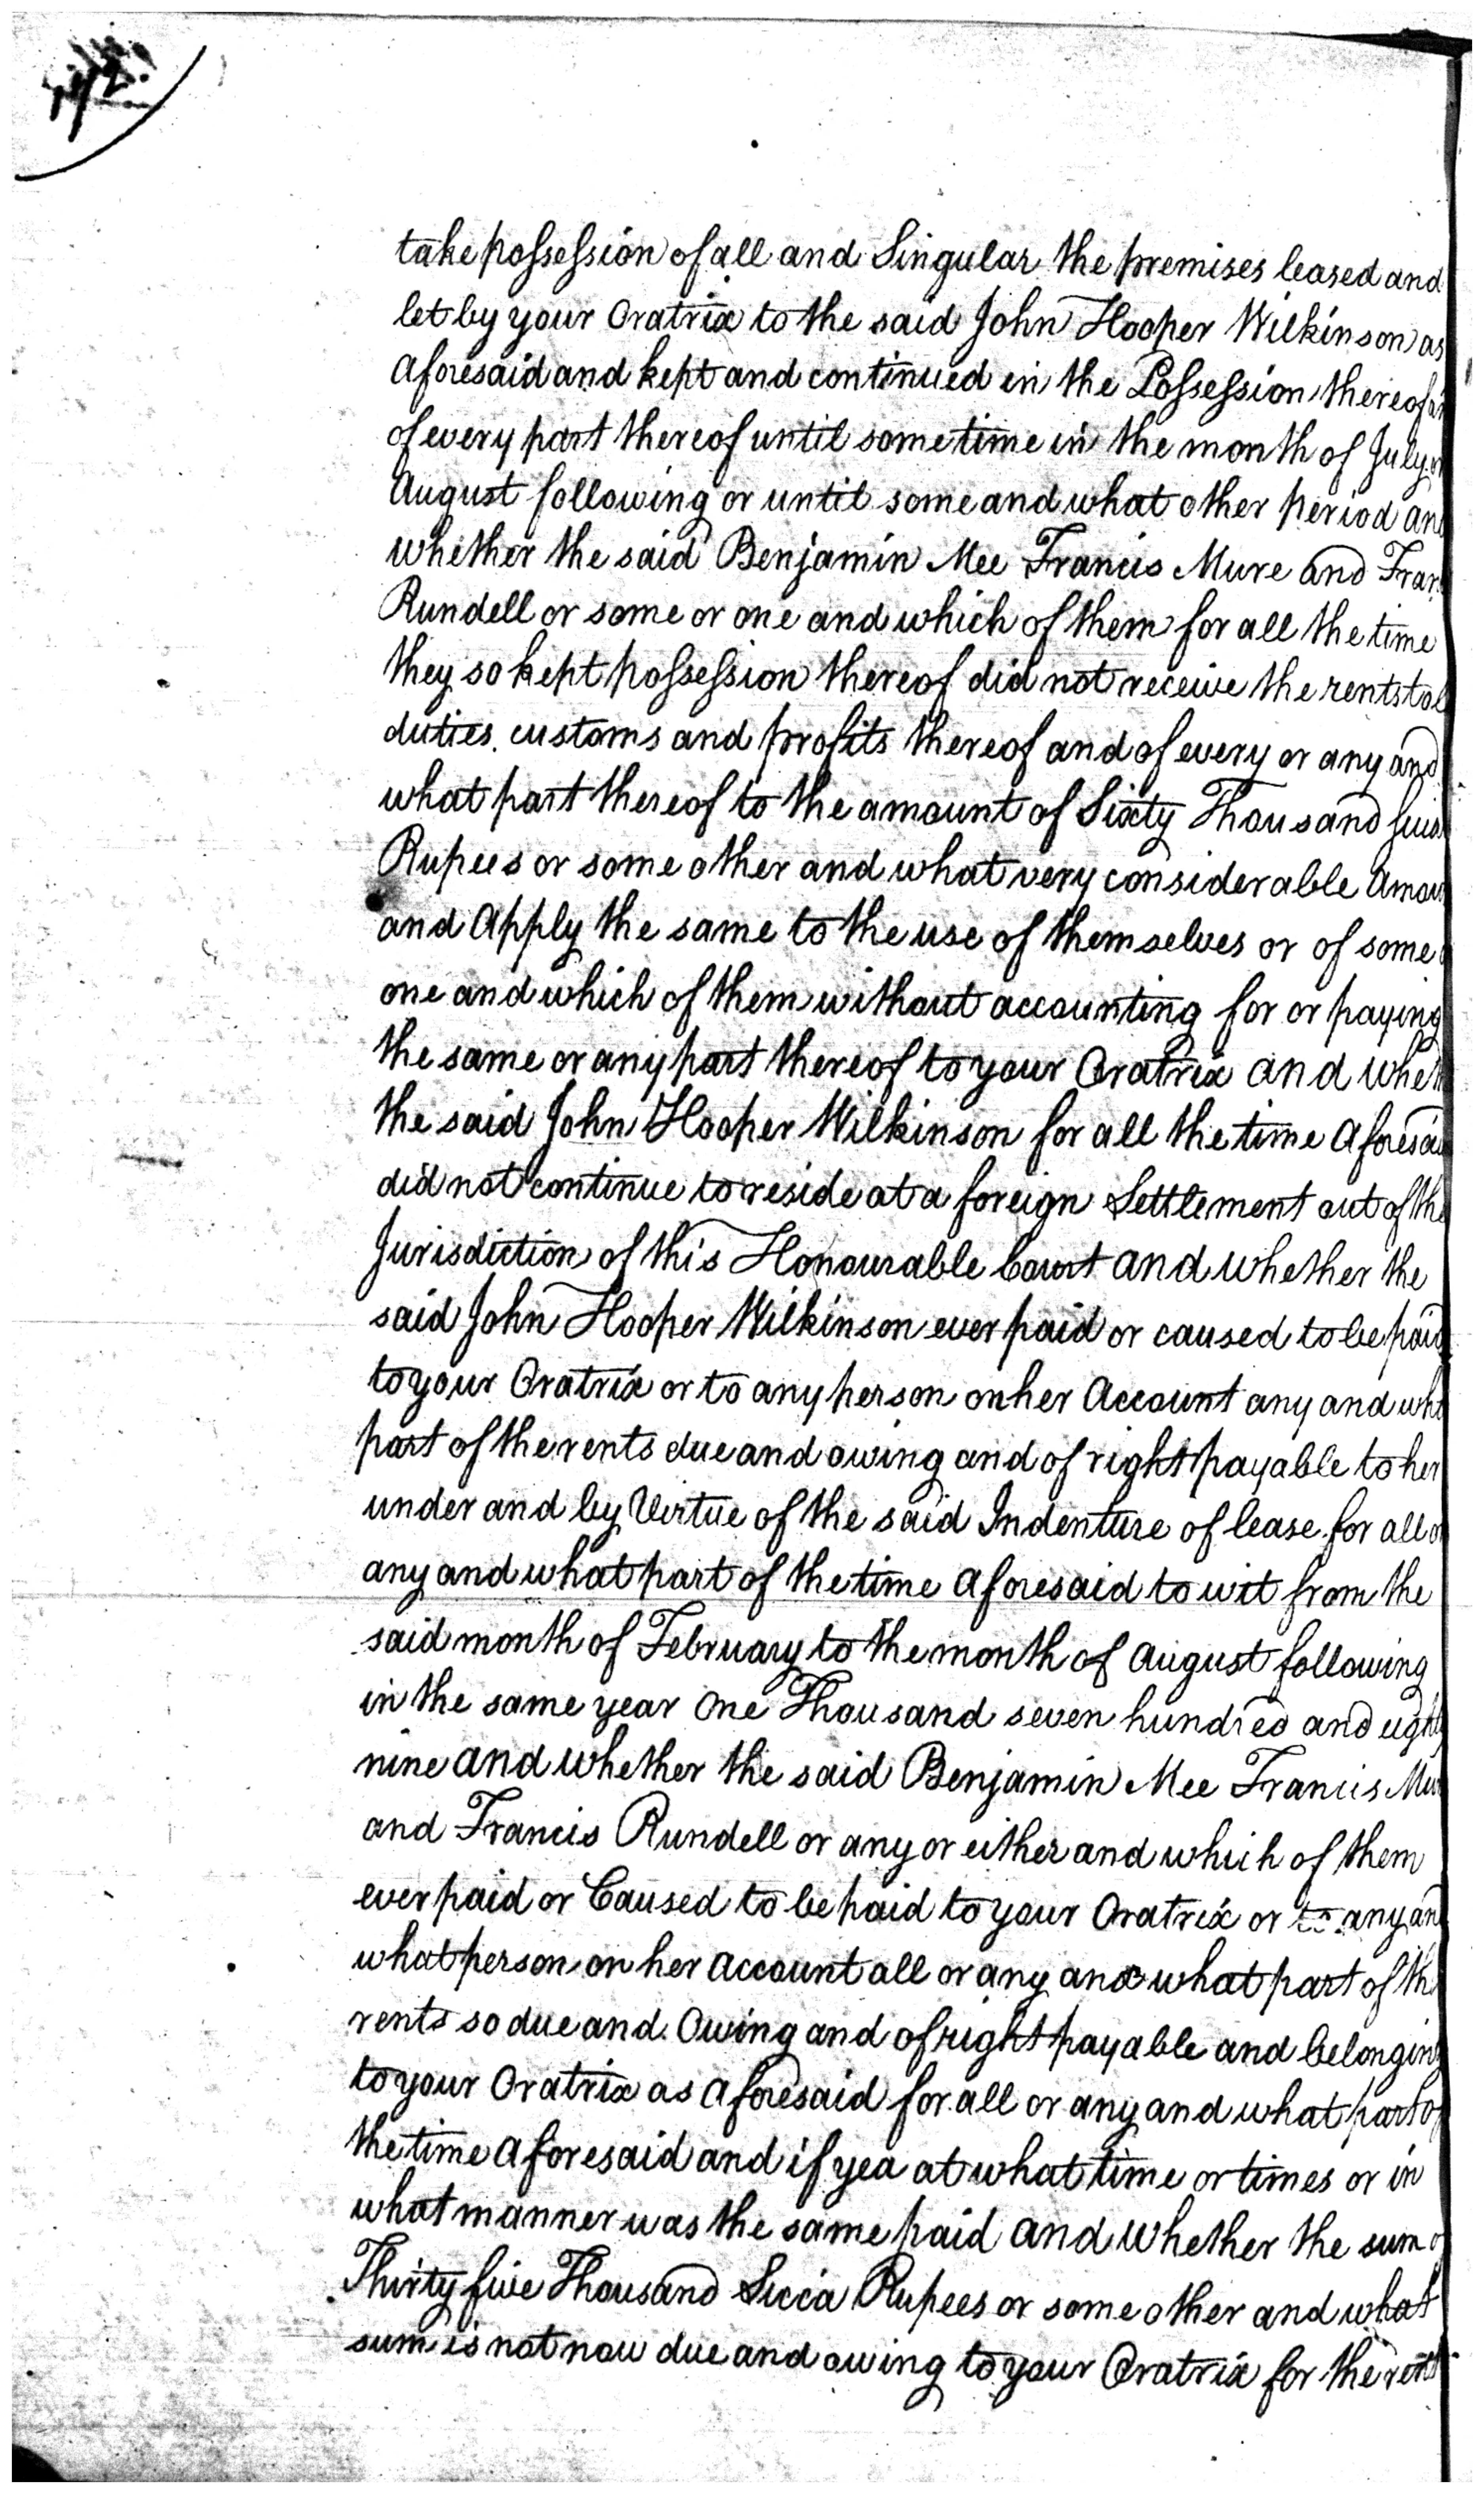 take possession of all and Singular the premises leased and
let by your Oratrix to the said John Hooper Wilkinson as
aforesaid and kept and continued in the Possession thereof
of every part thereof until some time in the month of July or
August following or until some and what other period and
whether the said Benjamin Mee Francis Mure and Fran
Rundell or some or one and which of them for all the time
they so kept possession thereof did not receive the rents
duties customs and profits thereof and of every or any and
what part thereof to the amount of Sixty Thousand
Rupees or some other and what very considerable Amou
and Apply the same to the use of themselves or of some
one and which of them without accounting for or paying
the same or any part thereof to your Oratrix and wheth
the said John Hooper Wilkinson for all the time aforesai
did not continue to reside at a foreign Settlement out of the
Jurisdiction of this Honourable Court and whether the
said John Hooper Wilkinson ever paid or caused to be paid
to your Oratrix or to any person on her Account any and wha
part of the rents due and owing and of right payable to her
under and by Virtue of the said Indenture of lease for all or
any and what part of the time aforesaid to wit from the
said month of February to the month of August following
in the same year One Thousand seven hundred and eighty
nine and whether the said Benjamin Mee Francis Mur
and Francis Rundell or any or either and which of them
ever paid or Caused to be paid to your Oratrix or to any and
what person on her Account all or any and what part of the
rents so due and Owing and of right payable and belonging
to your Oratrix as aforesaid for all or any and what part of
the time aforesaid and if yea at what time or times or in
what manner was the same paid and whether the sum of
Thirty five Thousand Sicca Rupees or some other and what
sum is not now due and owing to your Oratrix for the rent